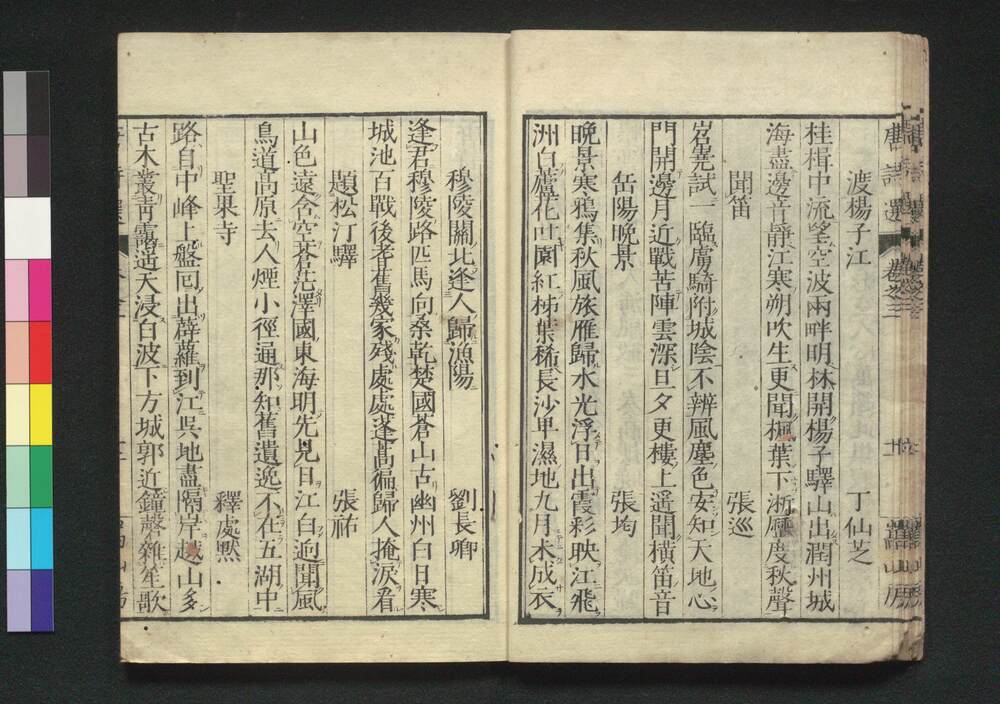 唐詩選 卷之三
渡楊子江 丁仙芝
桂楫中流望空波兩畔明林開楊子驛山出潤州城
海盡邊音靜江寒朔吹生更聞楓葉下淅瀝度秋聲
聞笛 張巡
岧嶤試一臨虜騎附城陰不辨風塵色安知天地心
門開邊月近戰苦陣雲深旦夕更樓上遥聞橫笛音
岳陽晩景 張均
晩景寒鴉集秋風旅雁歸水光浮日出霞彩映江飛
洲白蘆花吐園紅柹葉稀長沙卑濕地九月未成衣
穆陵關北逢人歸漁陽 劉長卿
逢君穆陵路匹馬向桑乾楚國蒼山古幽州白日寒
城池百戰後耆舊幾家殘處處蓬蒿徧歸人掩淚看
題松汀驛 張祐
山色遠含空蒼茫澤國東海明先見日江白迥聞風
鳥道高原去人煙小徑通那知舊遺逸不在五湖中
聖果寺 釋處默
路自中峰上盤回出薜蘿到江吳地盡隔岸越山多
古木叢青靄遥天浸白波下方城郭近鐘磬雜笙歌